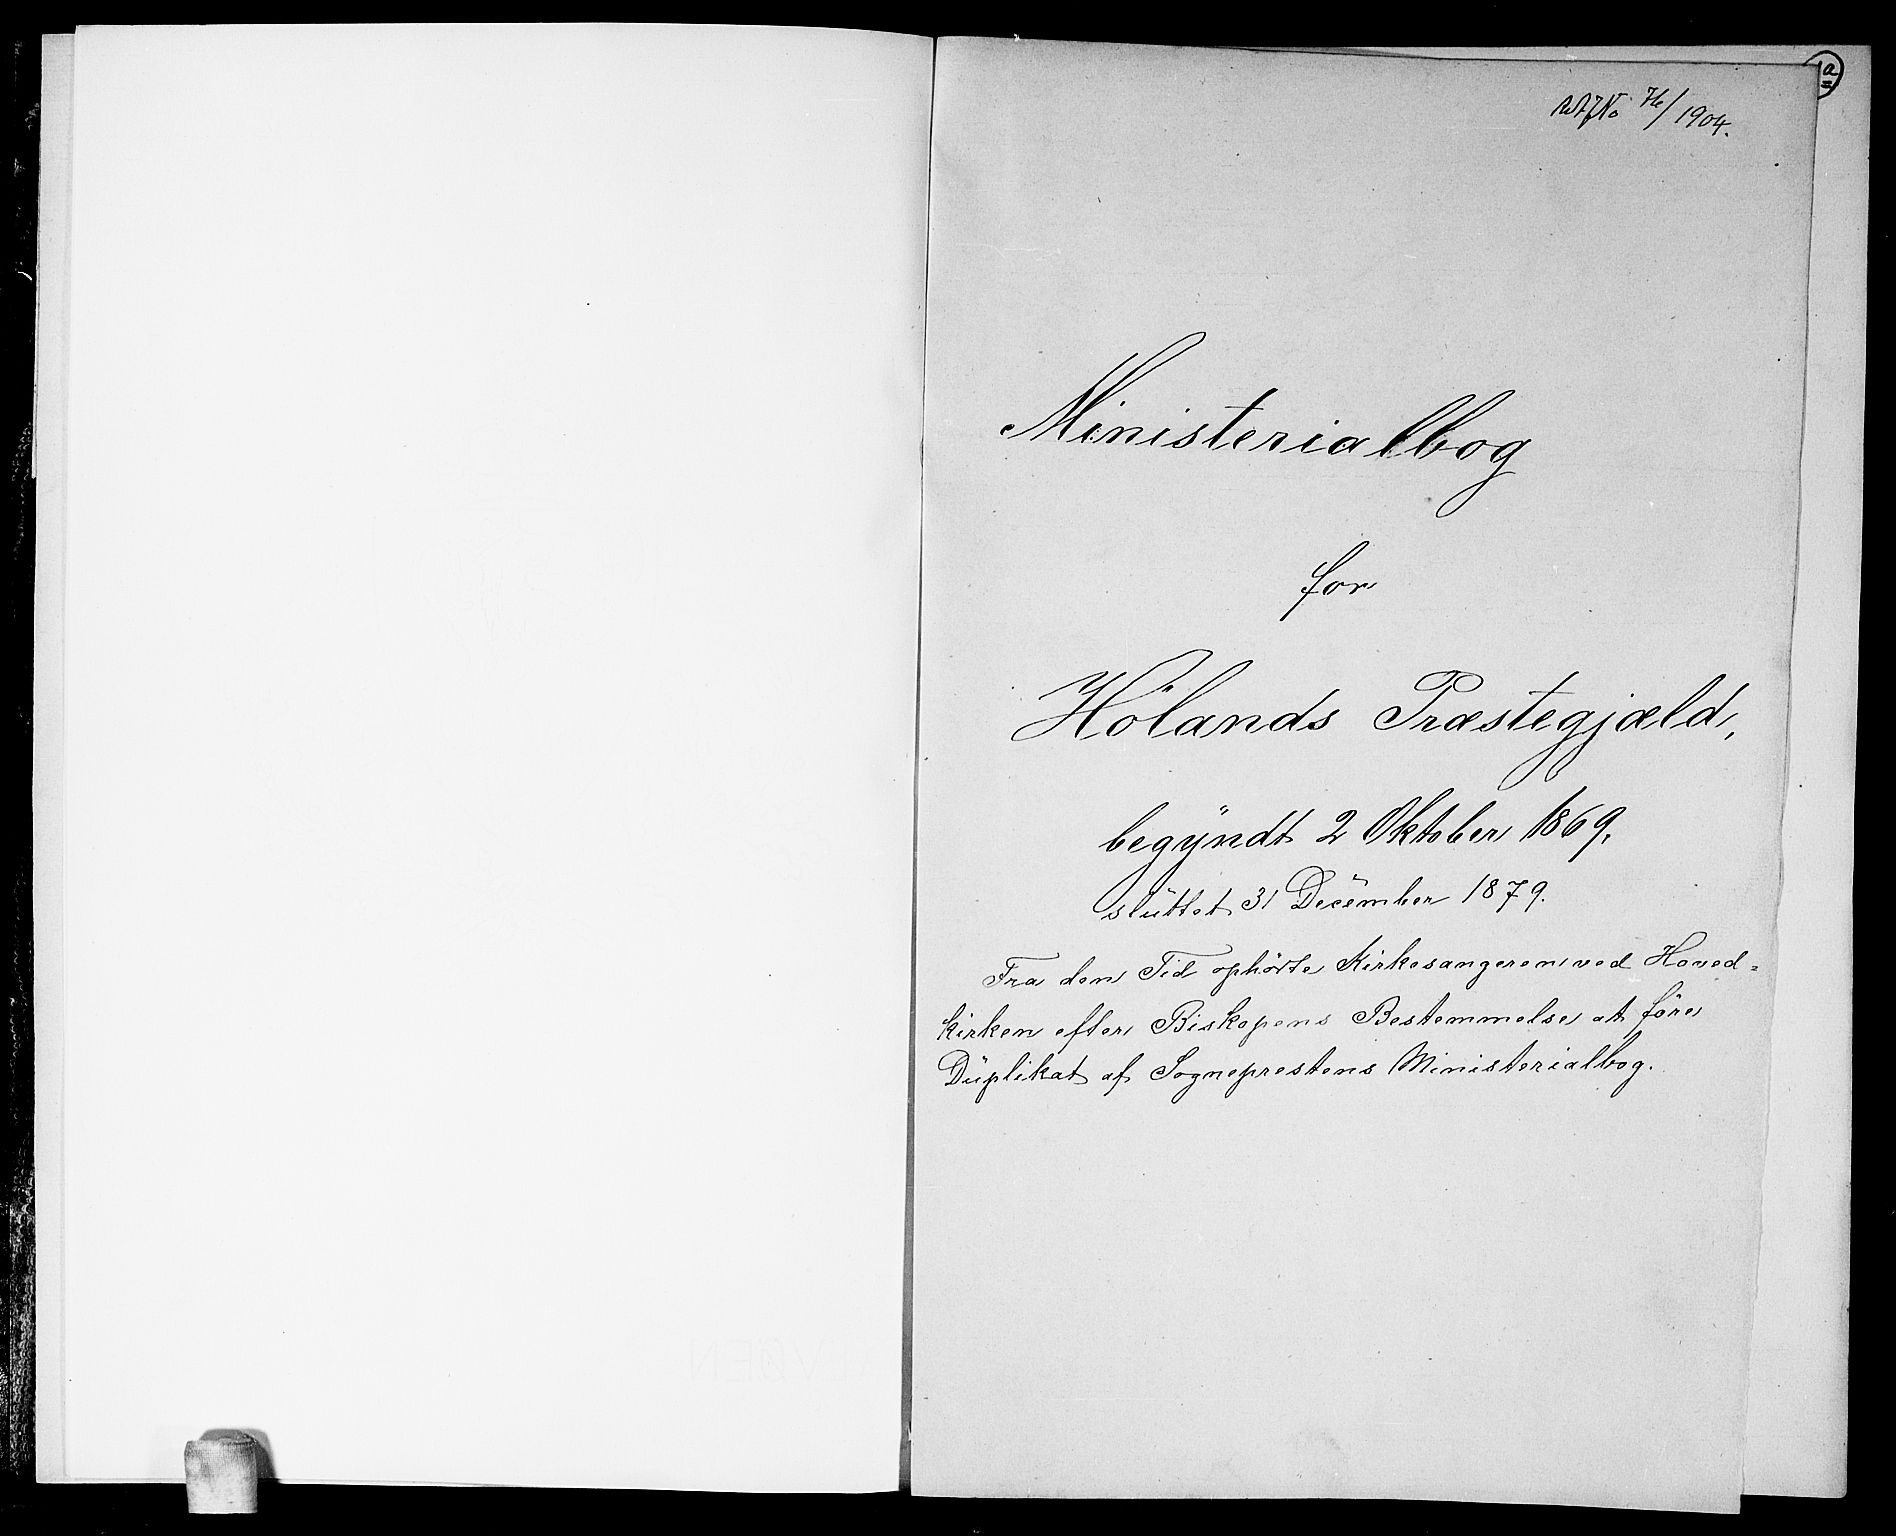 76/1904.
a
Ministerialbog
for
Hölands Præstegjæld,
begÿndt 2 Oktober 1869,
slŭttet 31 December 1879.
Fra den Tid ophörte Kirkesangeren ved Hoved=
kirken efter Biskopens Bestemmelse at före
Dŭplikat af Sogneprestens Ministerialbog.